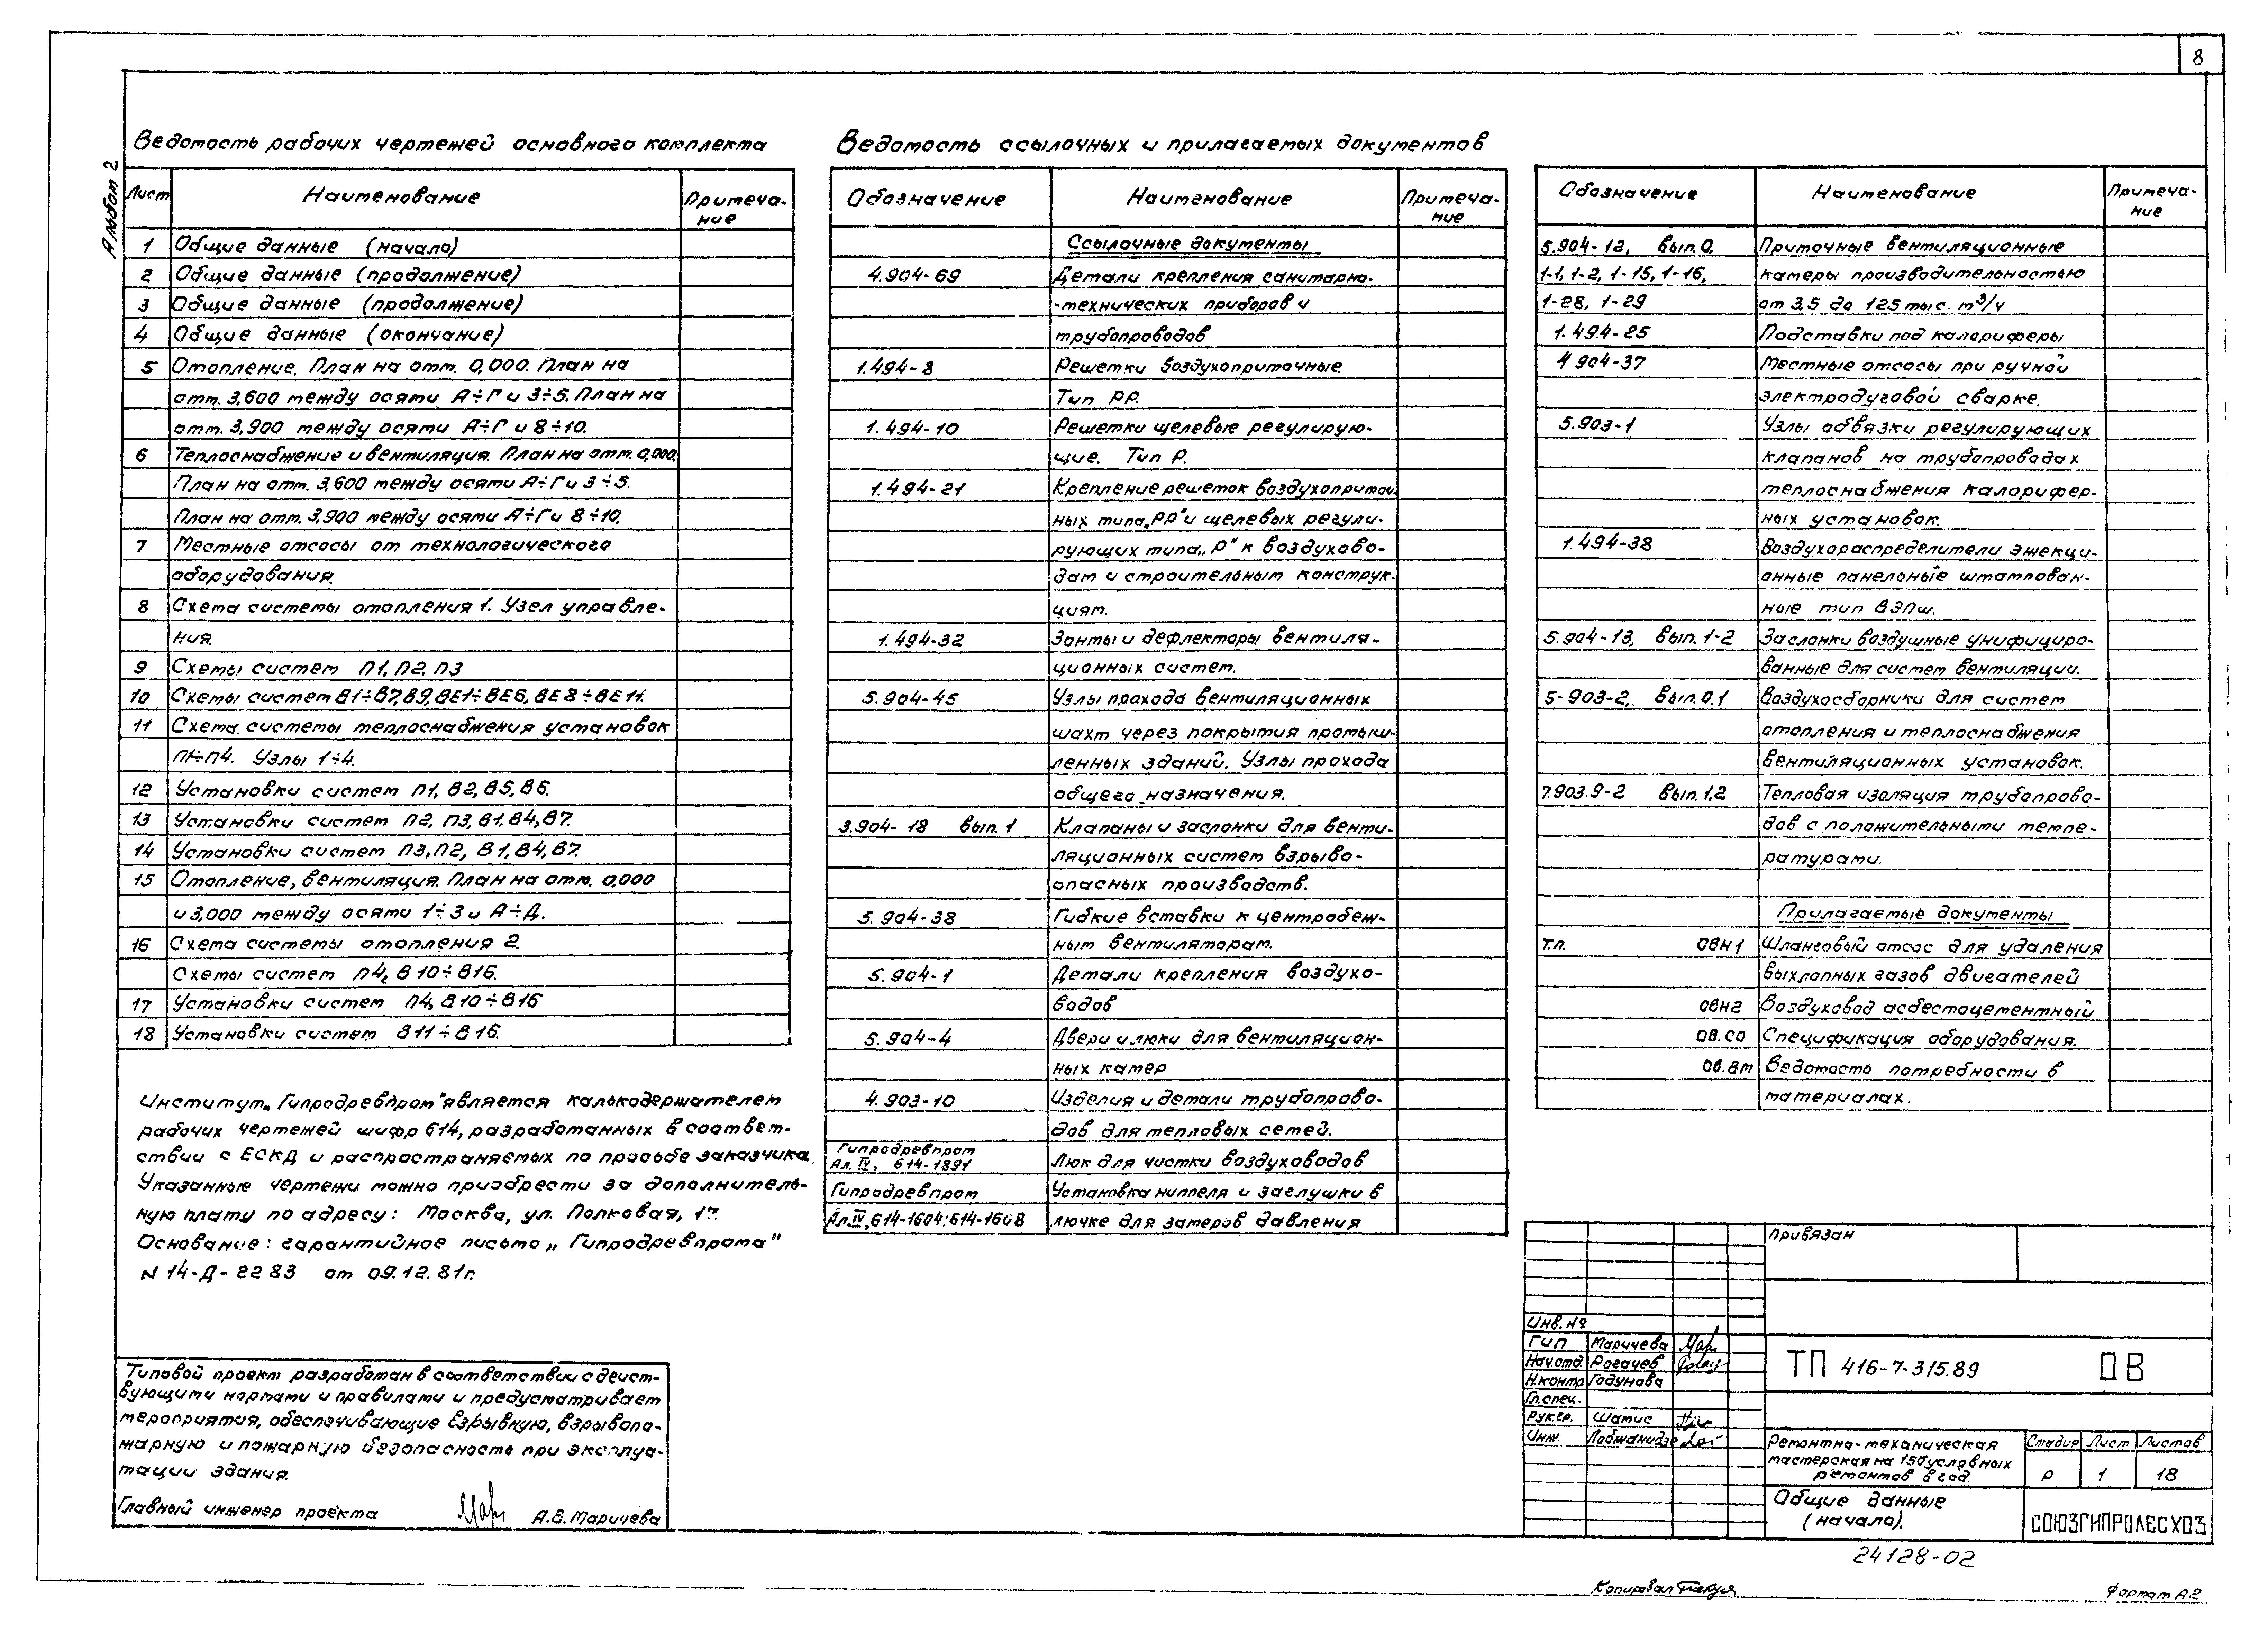 8
Альбом 2
Ведомость рабочих чертежей основного комплекта
Лист Наименование Примеча-
ние
1 Общие данные (начало)
2 Общие данные (продолжение)
3 Общие данные (продолжение)
4 Общие данные (окончание)
5 Отопление. План на отм. 0,000. План на
отм. 3,600 между осями А÷Г и 3÷5. План на
отм. 3,900 между осями А÷Г и 8÷10.
6 Теплоснабжение и вентиляция. План на отм. 0,000.
План на отм. 3,600 между осями А÷Г и 3÷5.
План на отм. 3,900 между осями А÷Г и 8÷10.
7 Местные отсосы от технологического
оборудования.
8 Схема системы отопления 1. Узел управле-
ния.
9 Схемы систем П1, П2, П3
10 Схемы систем В1÷В7, В9, ВЕ1÷ВЕ6, ВЕ8÷ВЕ11.
11 Схема системы теплоснабжения установок
П1÷П4. Узлы 1÷4.
12 Установки систем П1, В2, В5, В6.
13 Установки систем П2, П3, В1, В4, В7.
14 Установки систем П3, П2, В1, В4, В7.
15 Отопление, вентиляция. План на отм. 0,000
и 3,000 между осями 1÷3 и А÷Д.
16 Схема системы отопления 2.
Схемы систем П4, В10÷В16.
17 Установки систем П4, В10÷В16
18 Установки систем В11÷В16.
Институт „Гипродревпром" является калькодержателем
рабочих чертежей шифр 614, разработанных в соответ-
ствии с ЕСКД и распространяемых по просьбе заказчика.
Указанные чертежи можно приобрести за дополнитель-
ную плату по адресу: Москва, ул. Полковая, 17.
Основание: гарантийное письмо „Гипродревпрома"
N 14-Д-2283 от 09.12.81г.
Типовой проект разработан в соответствии с дейст-
вующими нормами и правилами и предусматривает
мероприятия, обеспечивающие взрывную, взрывопо-
жарную и пожарную безопасность при эксплуа-
тации здания.
Главный инженер проекта А.В. Маричева
Ведомость ссылочных и прилагаемых документов
Обозначение Наименование Примеча-
ние
Ссылочные документы
4.904-69 Детали крепления санитарно-
-технических приборов и
трубопроводов
1.494-8 Решетки воздухоприточные
Тип РР.
1.494-10 Решетки щелевые регулирую-
щие. Тип Р.
1.494-21 Крепление решеток воздухоприточ-
ных типа „РР" и щелевых регули-
рующих типа „Р" к воздухово-
дам и строительным конструк-
циям.
1.494-32 Зонты и дефлекторы вентиля-
ционных систем.
5.904-45 Узлы прохода вентиляционных
шахт через покрытия промыш-
ленных зданий. Узлы прохода
общего назначения.
3.904-18 вып. 1 Клапаны и заслонки для венти-
ляционных систем взрыво-
опасных производств.
5.904-38 Гибкие вставки к центробеж-
ным вентиляторам.
5.904-1 Детали крепления воздухо-
водов
5.904-4 Двери и люки для вентиляцион-
ных камер
4.903-10 Изделия и детали трубопрово-
дов для тепловых сетей.
Гипродревпром
Ал. IV, 614-1891 Люк для чистки воздуховодов
Гипродревпром Установка ниппеля и заглушки в
Ал. IV, 614-1604; 614-1608 лючке для замеров давления
Обозначение Наименование Примеча-
ние
5.904-12, вып. 0, Приточные вентиляционные
1-1, 1-2, 1-15, 1-16, камеры производительностью
1-28, 1-29 от 3,5 до 125 тыс. м³/ч
1.494-25 Подставки под калориферы
4 904-37 Местные отсосы при ручной
электродуговой сварке.
5.903-1 Узлы обвязки регулирующих
клапанов на трубопроводах
теплоснабжения калорифер-
ных установок.
1.494-38 Воздухораспределители эжекци-
онные панельные штампован-
ные тип ВЭПш.
5.904-13, вып. 1-2 Заслонки воздушные унифициро-
ванные для систем вентиляции.
5-903-2, вып. 0,1 Воздухосборники для систем
отопления и теплоснабжения
вентиляционных установок.
7.903.9-2 вып. 1,2 Тепловая изоляция трубопрово-
дов с положительными темпе-
ратурами.
Прилагаемые документы
т.п. ОВН1 Шланговый отсос для удаления
выхлопных газов двигателей
ОВН2 Воздуховод асбестоцементный
ОВ.СО Спецификация оборудования.
ОВ.ВМ Ведомость потребности в
материалах.
Привязан
Инв. №
ГИП Маричева
Нач.отд. Рогачев
Н.контр Годунова
Гл.спец.
Рук.гр. Шатис
Инж. Лобжанидзе
ТП 416-7-315.89 ОВ
Ремонтно-механическая
мастерская на 150 условных
ремонтов в год.
Стадия Лист Листов
Р 1 18
Общие данные
(начало).
СОЮЗГИПРОЛЕСХОЗ
24128-02
Копировал
Формат А2